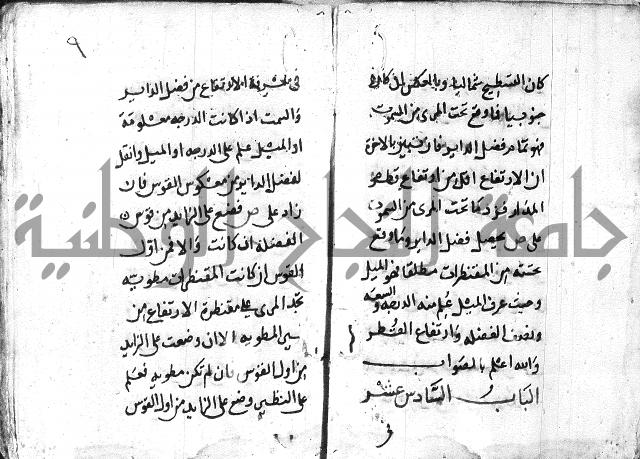 كان التسطيح شماليا وبالعكس ان كان
جنوبيا فما وقع تحت المرى من السموت
فهو تمام فضل الداير فان تبين بالاخرة
ان الارتفاع اقل من ارتفاع قطر
المدار فزد ما تحت المرى من السموت
على ص يحصل فضل الداير وما وقع
تحته من المقنطرات مطلقا فهو الميل
وحيث عرف الميل علم منه الدرجة والسعة
ونصف الفضلة وارتفاع القطر
والله اعلم بالصواب
الباب السادس عشر
في
٩
في معرفة الارتفاع من فضل الداير
والسمت اذا كانت الدرجة معلومة
او الميل علم على الدرجة او الميل وانقل
لفضل الداير من معكوس القوس فان
زاد على ص فضع على الزايد من قوس
الفضلة ان كانت والا فمن اول
القوس ان كانت المقنطرات مطوية
تجد المرى على مقنطرة الارتفاع من
غير المطوية الا ان وضعت على الزايد
من اول القوس فان لم تكن مطوية فعلم
على النظير وضع على الزايد من اول القوس
جامعة النجاح الوطنية